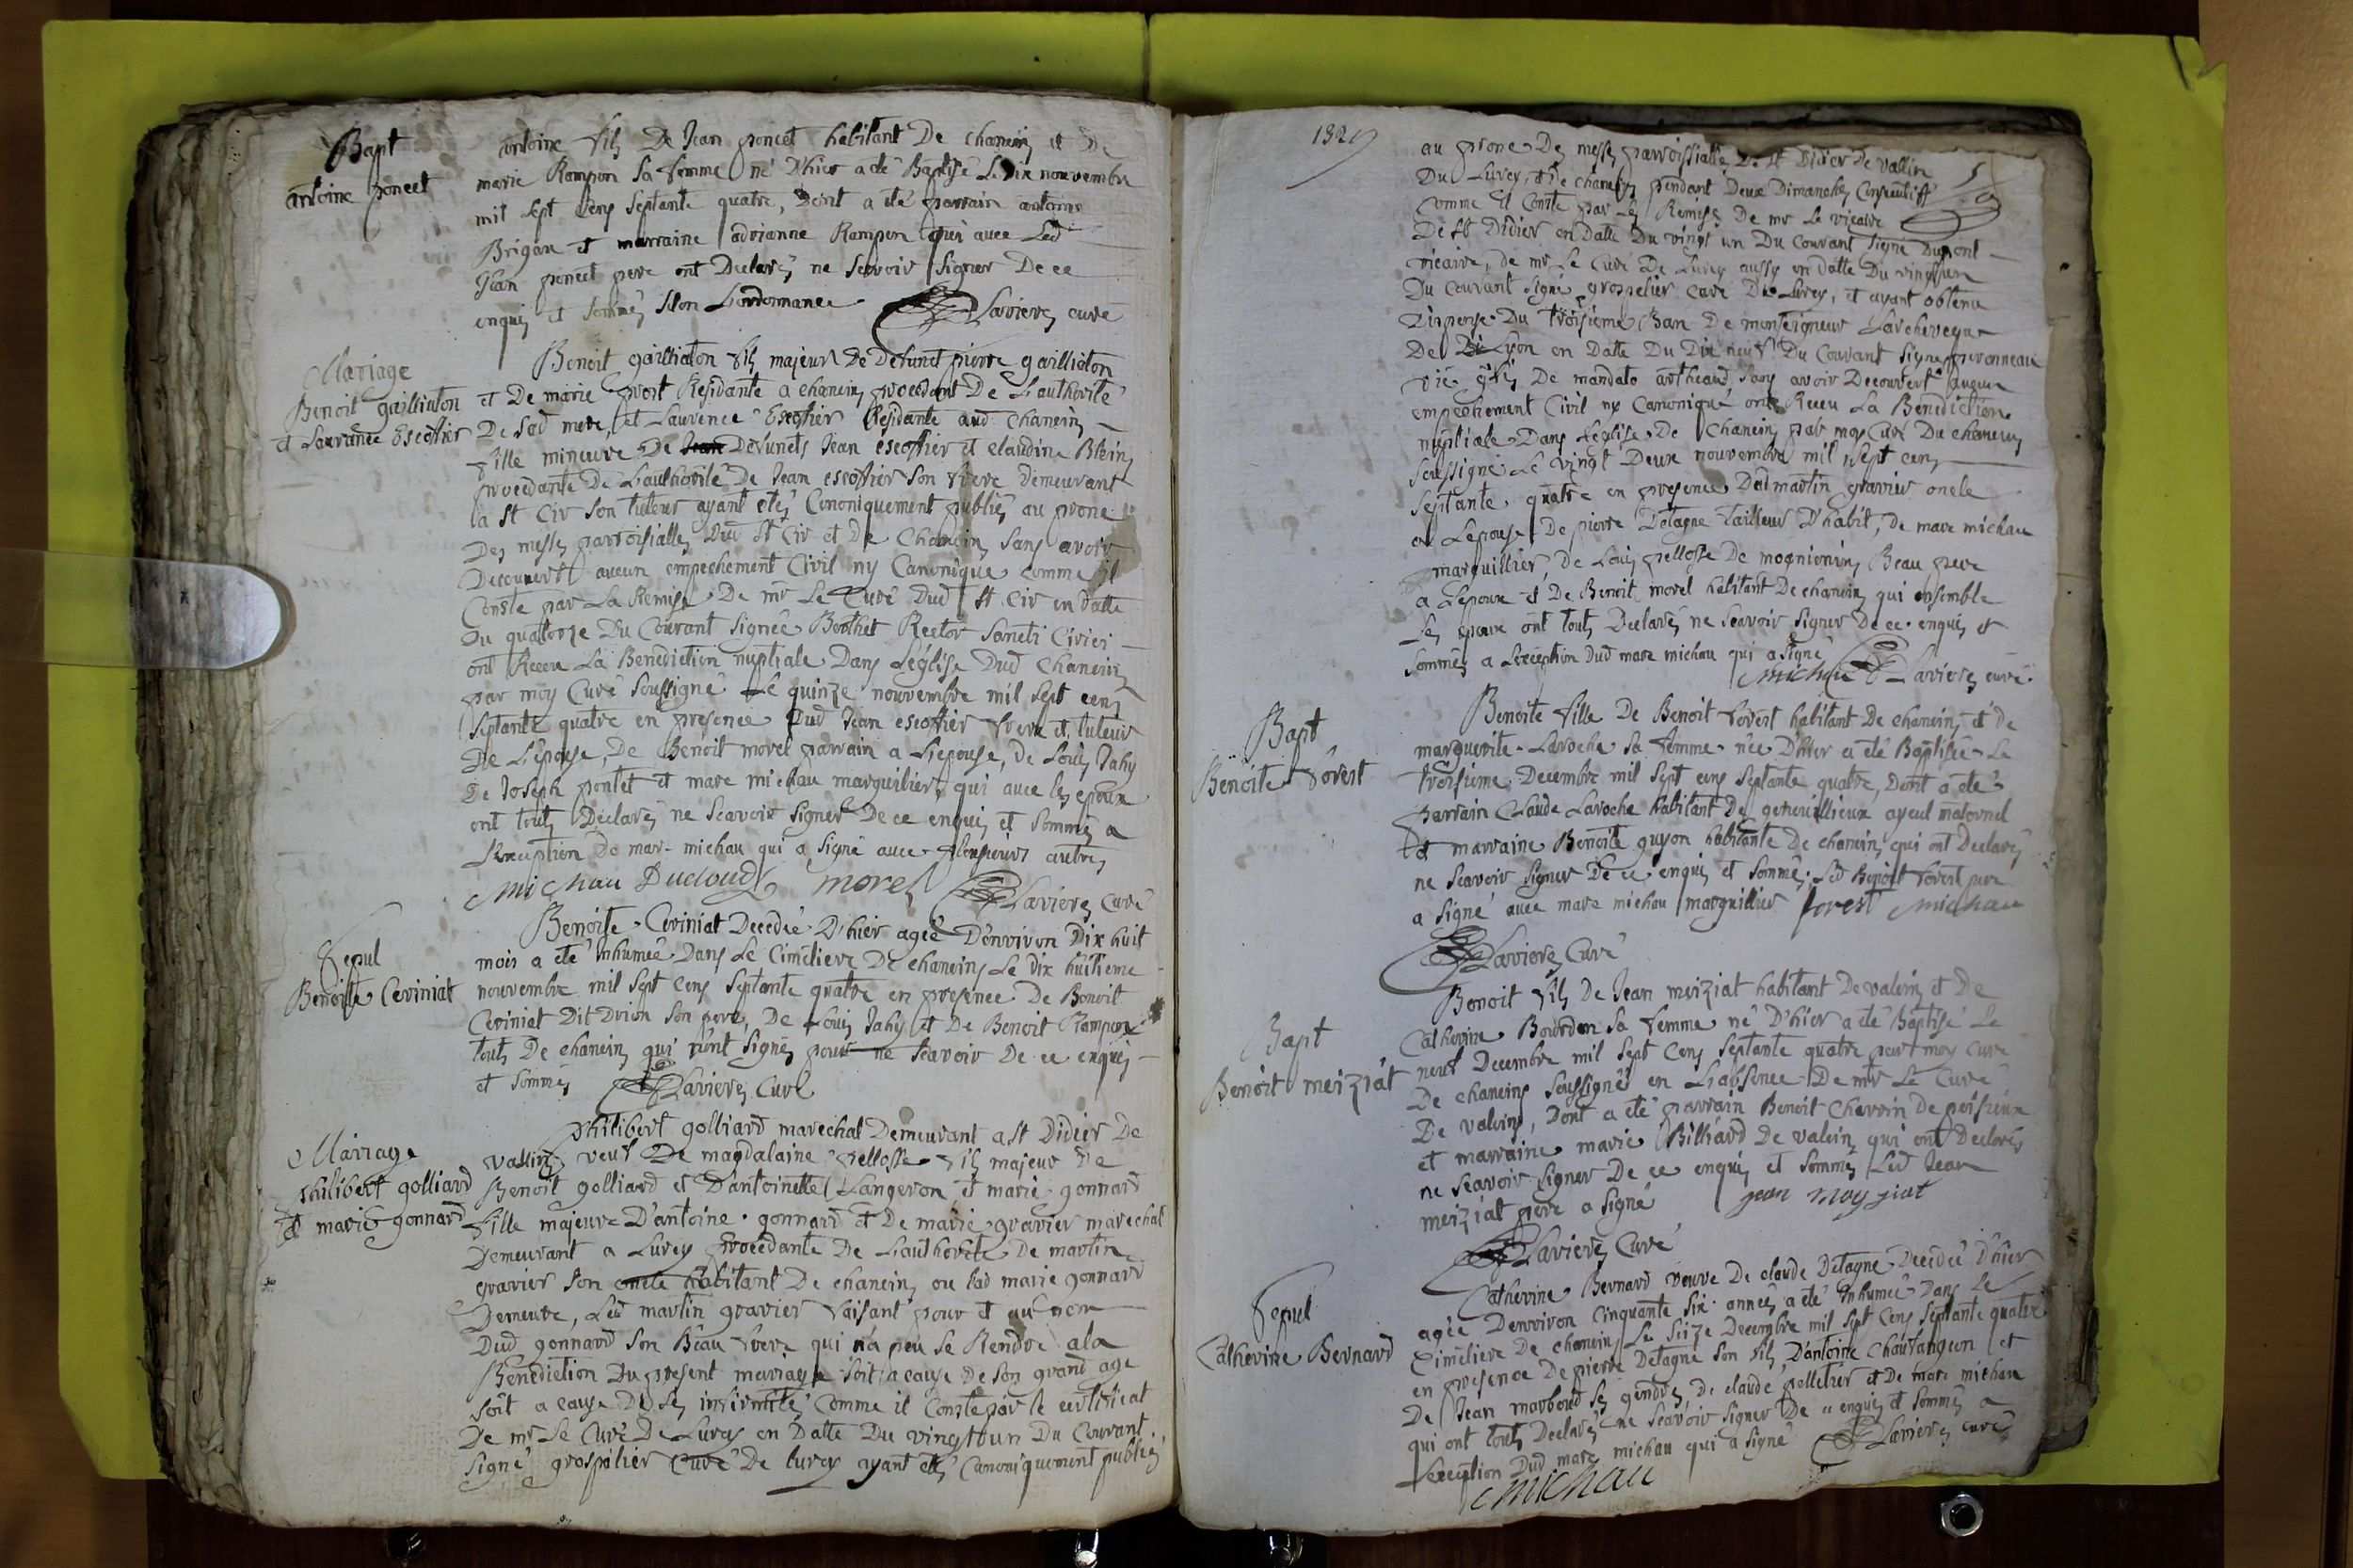 Bapt
antoine poncet
antoine fils De Jean poncet habitant De chanein, et De
marie Rampon sa femme né D'hier a été Baptisé Le Dix nouvembre
mil sept cens septante quatre, Dont a été parrain antoine
Brigan et marraine adrianne Rampon qui avec Led
Jean poncet pere ont Declarés ne scavoir signer De ce
enquis et sommés selon L'ordonnance Lavieres curé
Mariage
Benoit gailliaton
et Laurance Escoffier
Benoit gailliaton fils majeur De Defunct pierre gailliaton
et De marie prost Residante a chanein, procedant De L'authorité
De sad mere, et Laurence Escoffier Residante aud chanein,
fille mineure De Jean Defuncts Jean escoffier et claudine Blein,
procedante De L'authorité De Jean escoffier son frere Demeurant
a St Cir son tuteur ayant etés Canoniquement publiés au prone
Des messes parroisialles Dud St Cir et De Chanein, sans avoir
Decouvert aucun empechement Civil ny Canonique comme il
Conste par La Remise De mr Le Curé Dud St Cir en Datte
Du quatorze Du Courant signée Berthet Rector Sancti Cirici
ont Receu La Benediction nuptiale Dans L'église Dud chanein,
par moy Curé soussigné Le quinze nouvembre mil sept cens
septante quatre en presence Dud Jean escoffier frere et tuteur
De L'épouse, De Benoit morel parrain a L'epouse, De Louis Jahy
De Joseph pontet et marc michau marguillier, qui avec les epoux
ont touts Declarés ne scavoir signer De ce enquis et sommés a
L'exception De marc michau qui a signé avec plusieurs autres
Michau Ducloud morel Lavieres Curé
Sepul
Benoitte Ceviniat
Benoite Ceviniat Decedée D'hier agée D'environ Dix huit
mois a été Inhumée Dans Le Cimetiere De chanein, Le Dix huitieme
nouvembre mil sept cens septante quatre en presence De Benoit
Ceviniat Dit Drion son pere, De Louis Jahy et De Benoit Rampon
touts De chanein, qui n'ont signés pour ne scavoir De ce enquis
et sommés Lavieres Curé
Mariage
philibert golliard
et marie gonnard
philibert golliard marechal Demeurant a St Didier De
vallin, veuf De magdalaine pellosse fils majeur De
Benoit golliard et D'antoinette Langeron et marie gonnard
fille majeure D'antoine gonnard et De marie gravier marechal
Demeurant a Lurcy procedante De L'authorité De martin
gravier son oncle habitant De chanein, ou lad marie gonnard
Demeure, Led martin gravier faisant pour et au nom
Dud gonnard son Beau frere qui n'a peu se Rendre a la
Benediction Du present mariage soit a cause De son grand age
soit a cause De ses infirmités comme il Conste par le certificat
De mr Le Curé De Lurcy en Datte Du vingtun Du Courant
signé grospelier curé De lurcy ayant etés Canoniquement publiés
1329
au prone Des messes parroissialle De St Didier De vallin
Du Lurcy, et De chanein, pendant Deux Dimanches Consecutiff
comme il Conste par Les Remises De mr Le vicaire
De St Didier en Datte Du vingt un Du Courant signé Dupont
vicaire, De mr Le Curé De Lurcy aussy en datte Du vingtun
Du courant signé grospelier curé De Lurcy, et ayant obtenu
Dispense Du troisieme Ban De monseigneur L'archeveque
De Lyon en Datte Du Dix neuf Du Courant signé
De mandato sans avoir Decouvert aucun
empechement Civil ny Canonique ont Receu La Benediction
nuptiale Dans L'église De Chanein, par moy Curé Du chanein,
soussigné Le vingt Deux nouvembre mil sept cens
septante quatre en presence Dud martin gravier oncle
a L'epouse De pierre Detagne Tailleur D'habit, de marc michau
marguillier, de Louis pellosse De mognioneins Beau pere
a L'epoux et De Benoit morel habitant De chanein, qui ensemble
Les epoux ont touts Declarés ne scavoir signer De ce enquis et
sommés a L'exception Dud marc michau qui a signé
michau Lavieres curé
Bapt
Benoite forest
Benoite fille De Benoit forest habitant De chanein, et De
marguerite Laroche sa femme née D'hier a été Baptisée Le
troisieme Decembre mil sept cens septante quatre, Dont a été
parrain Claude Laroche habitant De genouillieux ayeul maternel
et marraine Benoite guyon habitante De chanein, qui ont Declarés
ne scavoir signer De ce enquis et sommés, Led Benoit forest pere
a signé avec marc michau marguillier forest michau
Lavieres Curé
Bapt
Benoit meiziat
Benoit fils De Jean meiziat habitant De valein, et De
Catherine Bourdon sa femme né D'hier a été Baptisé Le
neuf Decembre mil sept cens septante quatre par moy curé
De chanein, soussigné en L'absence De mr Le Curé
De valein, Dont a été parrain Benoit Chervin De peisieux
et marraine marie Billiard De valein, qui ont Declarés
ne scavoir signer De ce enquis et sommés Led Jean
meiziat pere a signé jean moyziat
Lavieres Curé
Sepul
Catherine Bernard
Catherine Bernard veuve De claude Detagne Decedée D'hier
agée D'environ Cinquante six années a été Inhumée Dans Le
Cimetiere De chanein, Le seize Decembre mil sept cens septante quatre
en presence De pierre Detagne son fils, D'antoine Chautangeon et
De Jean marboud ses gendres, De claude pelletier et De marc michau
qui ont touts Declarés ne scavoir signer De ce enquis et sommés a
L'exception Dud marc michau qui a signé Lavieres curé
michau